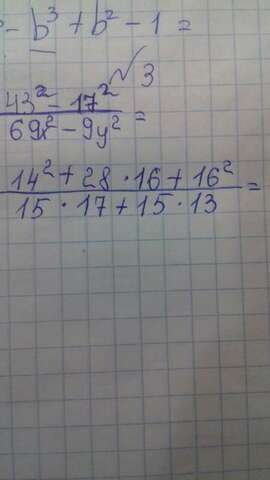 - b³ + b² - 1 =
3
43² - 17²
69x² - 9y² =
14² + 28 · 16 + 16²
15 · 17 + 15 · 13 =